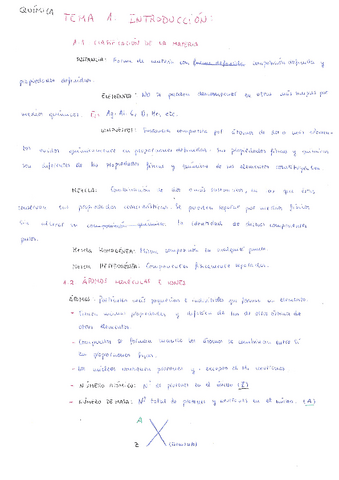 QUÍMICA
TEMA 1. INTRODUCCIÓN:
1.1 CLASIFICACIÓN DE LA MATERIA
SUSTANCIA: Forma de materia con forma definida composición definida y
propiedades definidas.
ELEMENTO: No se pueden descomponer en otras más simples por
medios químicos. Ej: Ag, Al, C, O, He, etc.
COMPUESTOS: Sustancia compuesta por átomos de dos o más elementos
unidos químicamente en proporciones definidas. Sus propiedades físicas y químicas
son diferentes de las propiedades físicas y químicas de los elementos constituyentes
MEZCLA: Combinación de dos o más sustancias, en la que éstas
conservan sus propiedades características. Se pueden separar por medios físicos
sin alterar su composición química la identidad de dichos componentes
puros.
MEZCLA HOMOGÉNEA: Misma composición en cualquier punto.
MEZCLA HETEROGÉNEA: Componentes físicamente separados.
1.2 ÁTOMOS MOLÉCULAS E IONES
ÁTOMOS: Partículas más pequeñas e individuales que forman un elemento.
- Tienen mismas propiedades y difieren de las de otros átomos de
otros elementos
- Compuestos se forman cuando los átomos se combinan entre sí
en proporciones fijas.
- Los núcleos contienen protones y neutrones
- NÚMERO ATÓMICO: Nº de protones en el átomo (Z)
- NÚMERO DE MASA: Nº total de protones y neutrones en el núcleo. (A)
A
X
Z